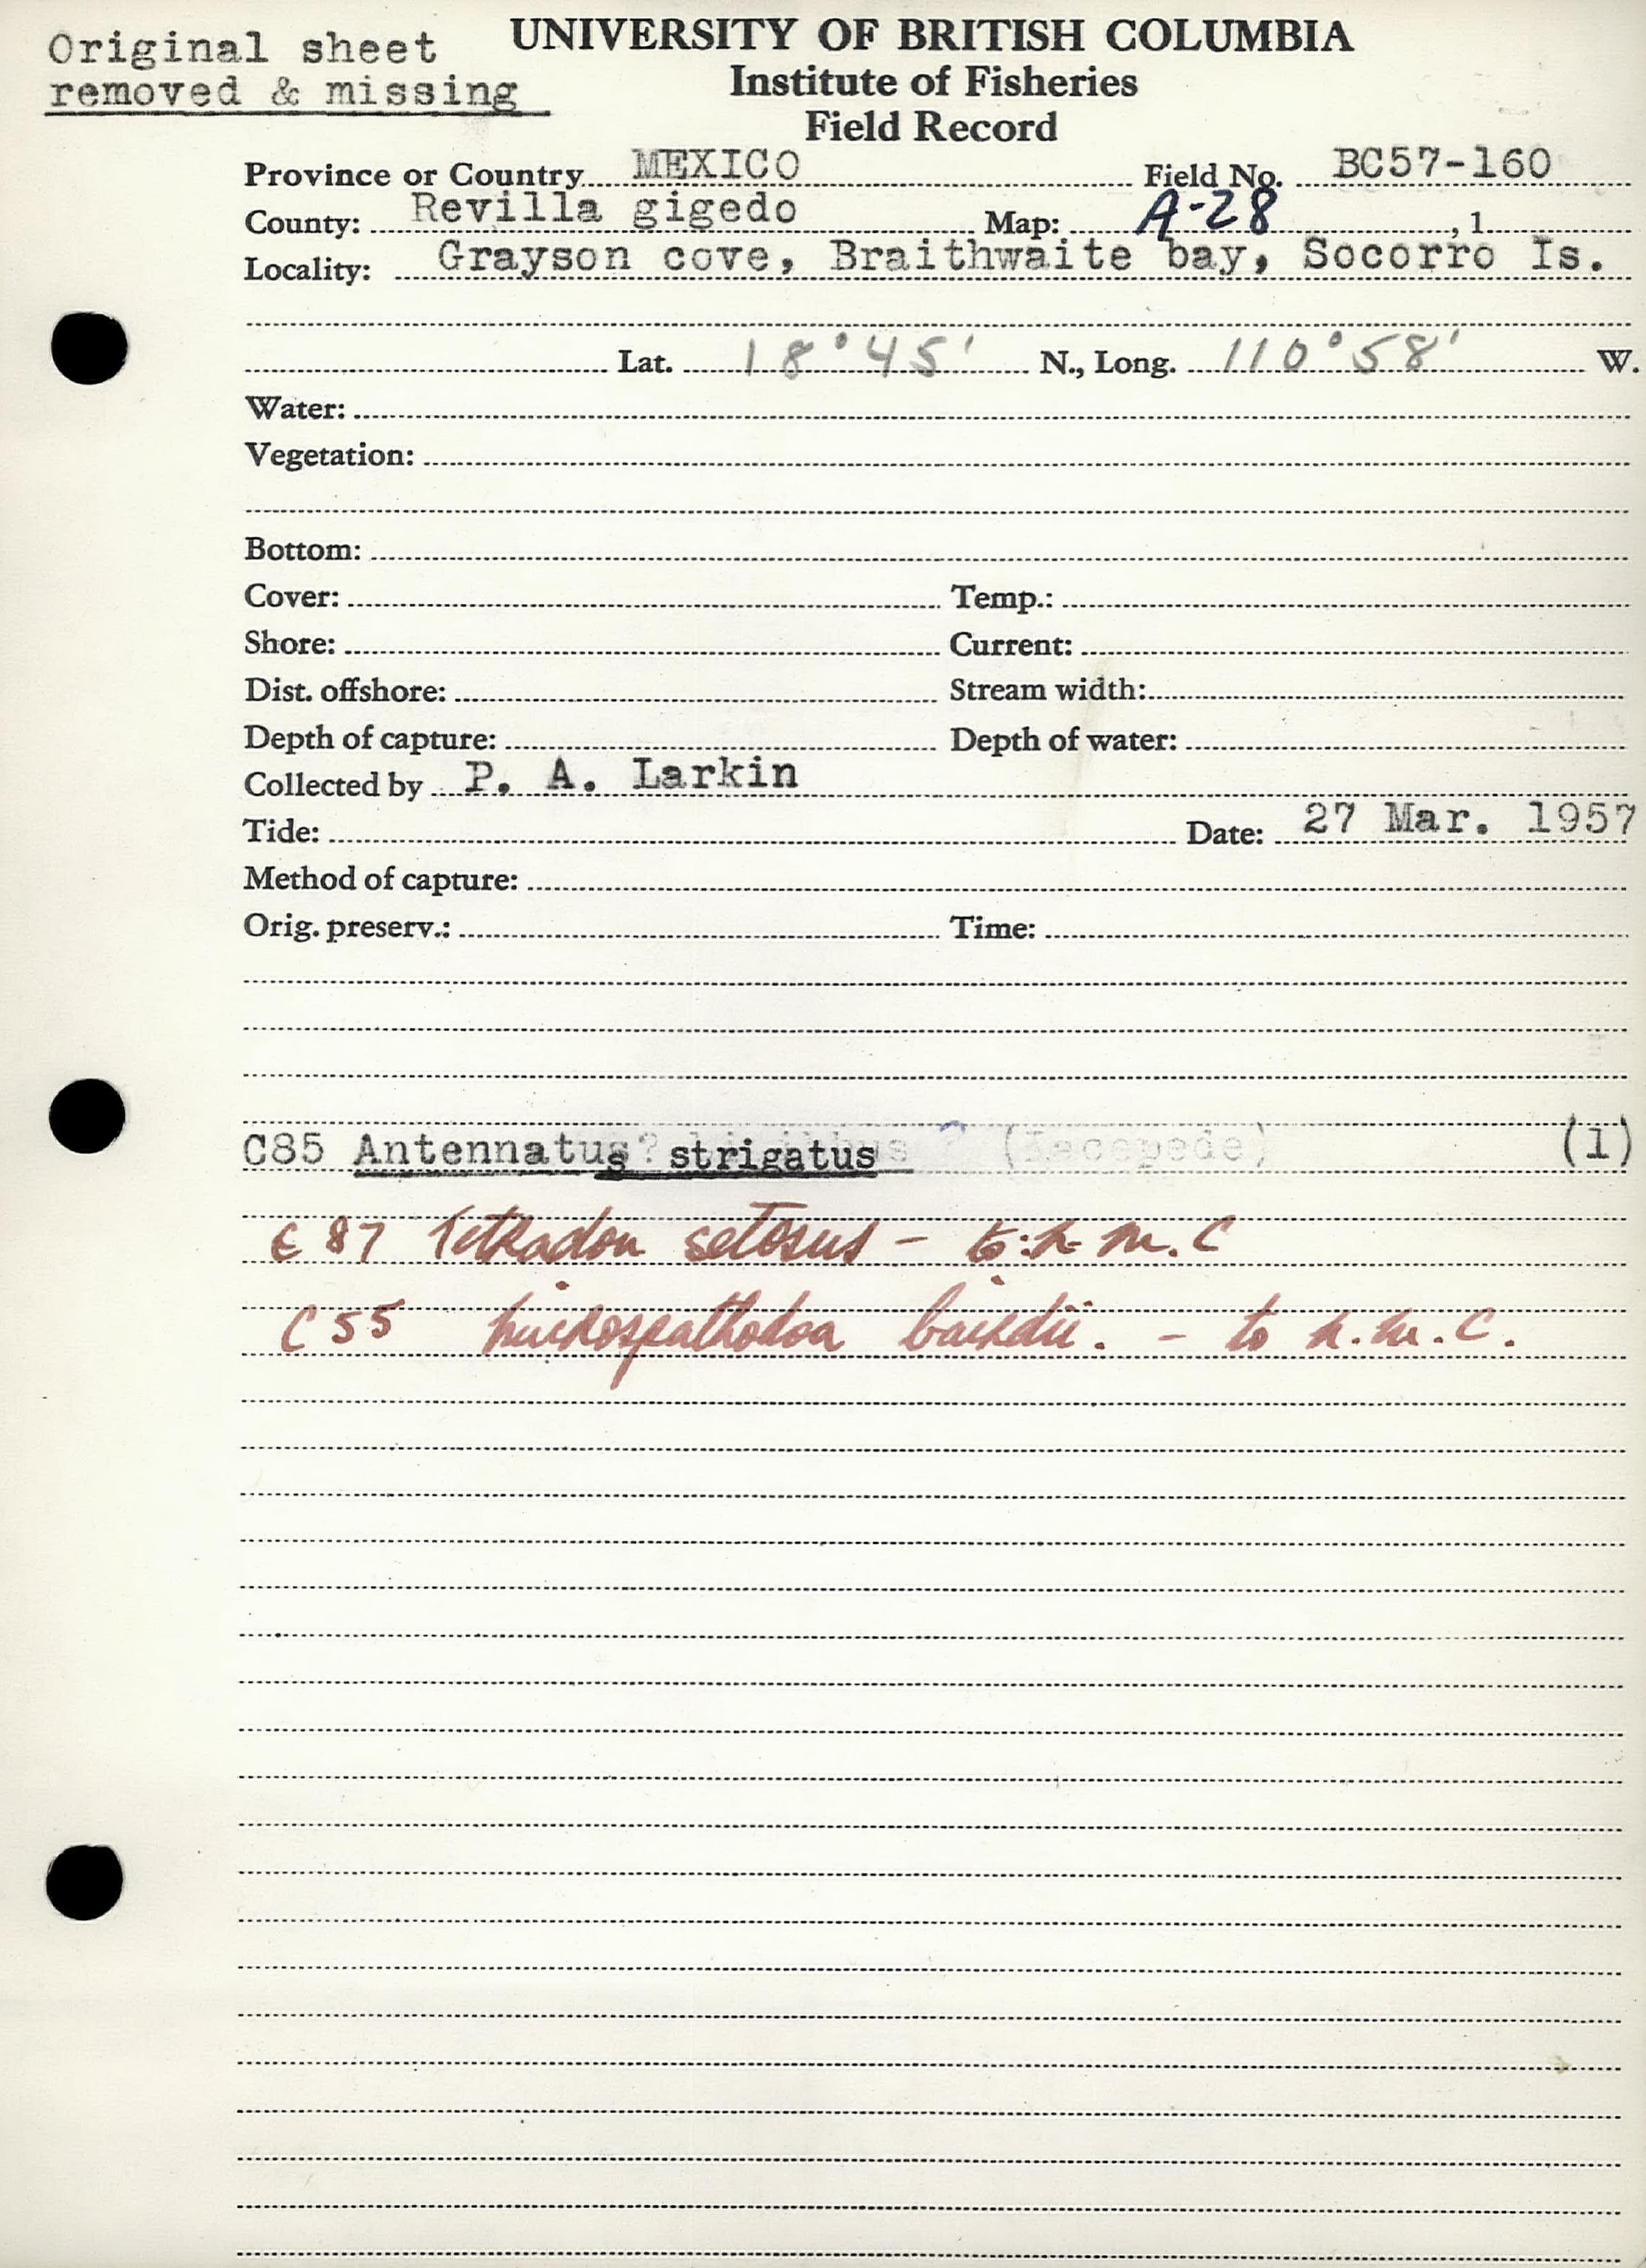 Original sheet
removed & missing
UNIVERSITY OF BRITISH COLUMBIA
Institute of Fisheries
Field Record
Province or Country MEXICO Field No. BC57-160
County: Revilla gigedo Map: A-28 , 1
Locality: Grayson cove, Braithwaite bay, Socorro Is.
Lat. 18°45' N., Long. 110°58' W.
Water:
Vegetation:
Bottom:
Cover: Temp.:
Shore: Current:
Dist. offshore: Stream width:
Depth of capture: Depth of water:
Collected by P. A. Larkin
Tide: Date: 27 Mar. 1957
Method of capture:
Orig. preserv.: Time:
C85 Antennatus strigatus (1)
C87 Tetradon setosus - to n.m.C
C55 bairdii. - to n.m.C.